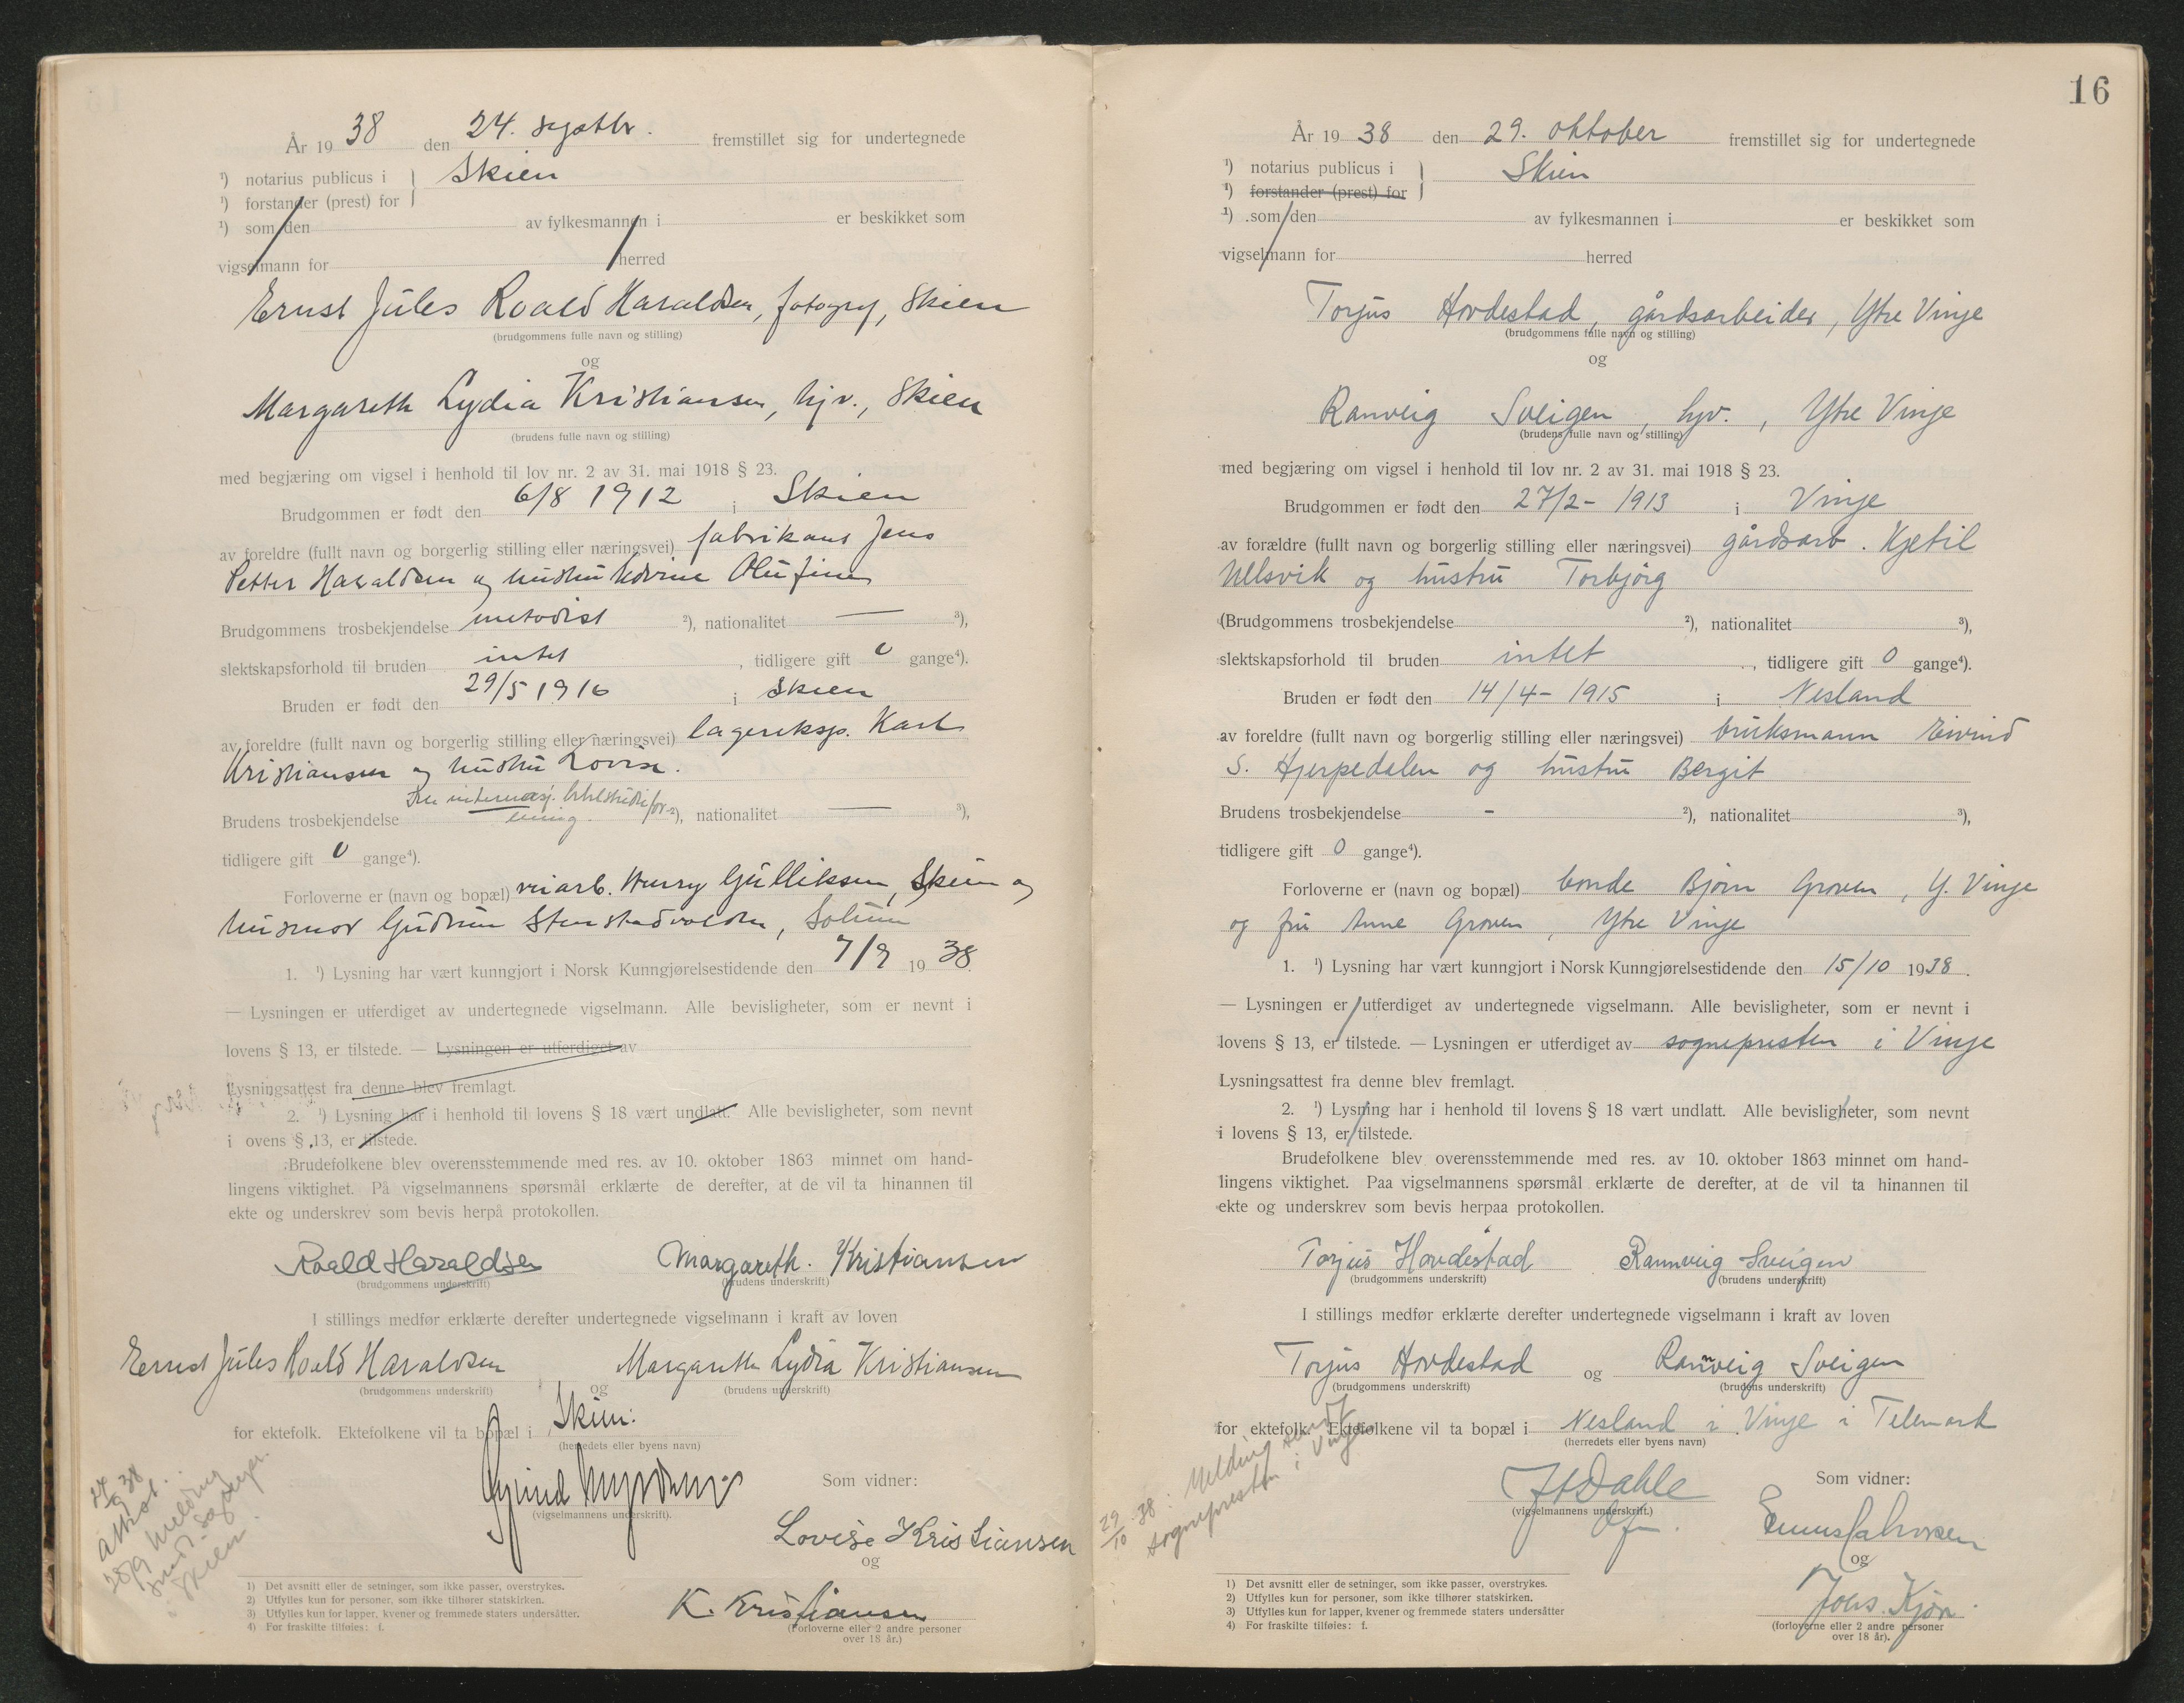 År 19 38 den 24. septbr. fremstillet sig for undertegnede
¹) notarius publicus i } Skien
¹) forstander (prest) for
¹) som den av fylkesmannen i er beskikket som
vigselmann for herred
Ernst Jules Roald Haraldsen, fotogrf, Skien
(brudgommens fulle navn og stilling)
og
Margareth Lydia Kristiansen, hjv., Skien
(brudens fulle navn og stilling)
med begjæring om vigsel i henhold til lov nr. 2 av 31. mai 1918 § 23.
Brudgommen er født den 6/8 1912 i Skien
av foreldre (fullt navn og borgerlig stilling eller næringsvei) fabrikant Jens
Petter Haraldsen og hustru Edvine Olufine
Brudgommens trosbekjendelse metodist ²), nationalitet — ³),
slektskapsforhold til bruden intet, tidligere gift 0 gange⁴).
Bruden er født den 29/5 1916 i Skien
av foreldre (fullt navn og borgerlig stilling eller næringsvei) lagereksp. Karl
Kristiansen og hustru Lovise.
Den internasj. bibelstudiefor-
Brudens trosbekjendelse ening. ²), nationalitet — ³),
tidligere gift 0 gange⁴).
Forloverne er (navn og bopæl) veiarb. Harry Gulliksen, Skien og
husmor Gudrun Stenstadvolden, Solum
1. ¹) Lysning har vært kunngjort i Norsk Kunngjørelsestidende den 7/9 19 38.
— Lysningen er utferdiget av undertegnede vigselmann. Alle bevisligheter, som er nevnt i
lovens § 13, er tilstede. — Lysningen er utferdiget av
Lysningsattest fra denne blev fremlagt.
2. ¹) Lysning har i henhold til lovens § 18 vært undlatt. Alle bevisligheter, som nevnt
i ovens § 13, er tilstede.
Brudefolkene blev overensstemmende med res. av 10. oktober 1863 minnet om hand-
lingens viktighet. På vigselmannens spørsmål erklærte de derefter, at de vil ta hinannen til
ekte og underskrev som bevis herpå protokollen.
Roald Haraldsen Margareth. Kristiansen
(brudgommens underskrift) (brudens underskrift)
I stillings medfør erklærte derefter undertegnede vigselmann i kraft av loven
Ernst Jules Roald Haraldsen og Margareth Lydia Kristiansen
(brudgommens underskrift) (brudens underskrift)
for ektefolk. Ektefolkene vil ta bopæl i Skien.
(herredets eller byens navn)
Som vidner:
(vigselmannens underskrift).
Lovise Kristiansen
og
K. Kristiansen
(Forloverne eller 2 andre personer
over 18 år.)
24/9 38
attest.
28/9 melding
sendt sognepr.
i Skien.
1) Det avsnitt eller de setninger, som ikke passer, overstrykes.
2) Utfylles kun for personer, som ikke tilhører statskirken.
3) Utfylles kun for lapper, kvener og fremmede staters undersåtter.
4) For fraskilte tilføies: f.
16
År 19 38 den 29. oktober fremstillet sig for undertegnede
¹) notarius publicus i } Skien
¹) forstander (prest) for
¹) som den av fylkesmannen i er beskikket som
vigselmann for herred
Torjus Hovdestad, gårdsarbeider, Ytre Vinje
(brudgommens fulle navn og stilling)
og
Ranveig Sveigen, hjv., Ytre Vinje
(brudens fulle navn og stilling)
med begjæring om vigsel i henhold til lov nr. 2 av 31. mai 1918 § 23.
Brudgommen er født den 27/2- 1913 i Vinje
av forældre (fullt navn og borgerlig stilling eller næringsvei) gårdsarb. Kjetil
Ullsvik og hustru Torbjørg
(Brudgommens trosbekjendelse ²), nationalitet ³),
slektskapsforhold til bruden intet, tidligere gift 0 gange⁴).
Bruden er født den 14/4- 1915 i Nesland
av foreldre (fullt navn og borgerlig stilling eller næringsvei) bruksmann Eivind
S. Hjerpedalen og hustru Bergit
Brudens trosbekjendelse - ²), nationalitet ³),
tidligere gift 0 gange⁴).
Forloverne er (navn og bopæl) bonde Bjørn Groven, Y. Vinje
og fru Anne Groven, Ytre Vinje
1. ¹) Lysning har vært kunngjort i Norsk Kunngjørelsestidende den 15/10 1938.
— Lysningen er utferdiget av undertegnede vigselmann. Alle bevisligheter, som er nevnt i
lovens § 13, er tilstede. — Lysningen er utferdiget av sognepresten i Vinje
Lysningsattest fra denne blev fremlagt.
2. ¹) Lysning har i henhold til lovens § 18 vært undlatt. Alle bevisligheter, som nevnt
i lovens § 13, er tilstede.
Brudefolkene blev overensstemmende med res. av 10. oktober 1863 minnet om hand-
lingens viktighet. Paa vigselmannens spørsmål erklærte de derefter, at de vil ta hinannen til
ekte og underskrev som bevis herpaa protokollen.
Torjus Hovdestad Rannveig Sveigen
(brudgommens underskrift) (brudens underskrift)
I stillings medfør erklærte derefter undertegnede vigselmann i kraft av loven
Torjus Hovdestad og Rannveig Sveigen
(brudgommens underskrift) (brudens underskrift)
for ektefolk. Ektefolkene vil ta bopæl i Nesland i Vinje i Telemark
(herredets eller byens navn)
29/10 38: Melding sendt
sognepresten i Vinje
Dahle
Som vidner:
(vigselmannens underskrift.)
og
Johs. Kjøn
(forloverne eller 2 andre personer
over 18 år).
1) Det avsnitt eller de setninger, som ikke passer, overstrykes.
2) Utfylles kun for personer, som ikke tilhører statskirken.
3) Utfylles kun for lapper, kvener og fremmede staters undersåtter
4) For fraskilte tilføies: f.